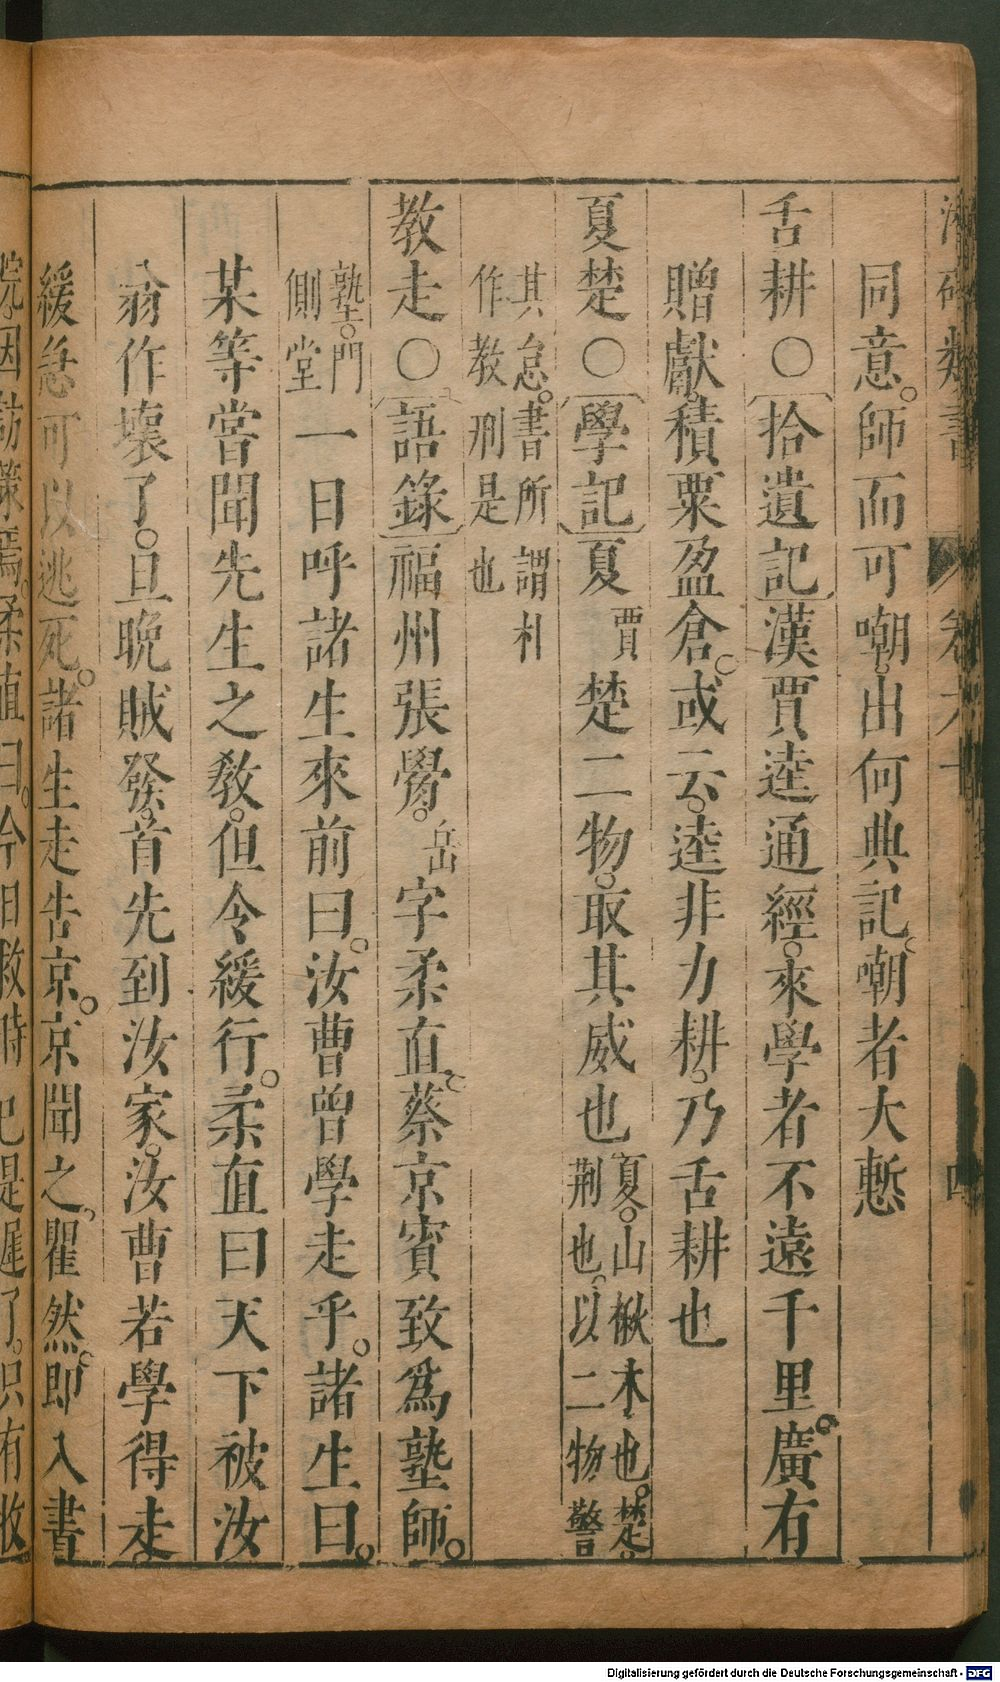 類書 卷之 四
同意。師而可嘲。出何典記。嘲者大慙
舌耕○拾遺記漢賈逵通經。來學者不遠千里。廣有
贈獻。積粟盈倉。或云。逵非力耕。乃舌耕也
夏楚○學記夏賈楚二物。取其威也夏。山楸木也。楚。荆也。以二物警
其怠。書所謂朴作教刑是也
教走○語錄福州張觷。岳字柔直。蔡京賓致爲塾師。
塾。門側堂一日呼諸生來前曰。汝曹曾學走乎。諸生曰。
某等嘗聞先生之教。但令緩行。柔直曰天下被汝
翁作壞了。旦晚賊發。首先到汝家。汝曹若學得走。
緩急可以逃死。諸生走告京。京聞之。瞿然。即入書
院。因訪策焉。柔直曰。今日救時已是遲了。只有收
Digitalisierung gefördert durch die Deutsche Forschungsgemeinschaft - DFG